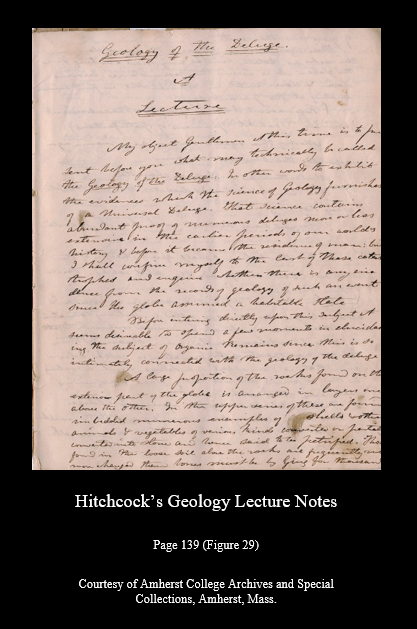 Geology of the Deluge.
A
Lecture
My object Gentlemen at this time is to pre
sent before you what may technically be called
the Geology of the Deluge: In other words to exhibit
the evidences which the science of Geology furnishes
of a Universal Deluge. That science contains
abundant proof of numerous deluges more or less
extensive in the earlier periods of our world's
history & before it became the residence of man: but
I shall confine myself to the last of these catas
trophes and inquire whether there is any evi
dence from the records of geology of such an event
since the globe assumed a habitable state
Before entering directly upon this subject it
seems desirable to spend a few moments in elucidat
ing the subject of Organic Remains since this is so
intimately connected with the geology of the deluge
A large proportion of the rocks found on the
exterior part of the globe is arranged in layers one
above the other. In the upper series of these are found
imbedded numerous examples of shells & other
animals & vegetables of various kinds
converted into stone and hence said to be petrified. Those
found in the loose soil above the rocks are frequently
more changed than bones must be by lying for thousand
Hitchcock's Geology Lecture Notes
Page 139 (Figure 29)
Courtesy of Amherst College Archives and Special
Collections, Amherst, Mass.